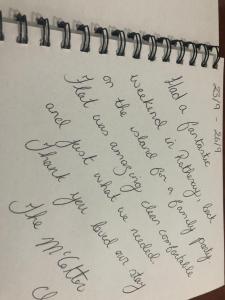 23/9 - 26/9
Had a fantastic
weekend in Rothesay, back
on the island for a family party
Flat was amazing clean comfortable
and just what we needed
Thank you loved our stay
The